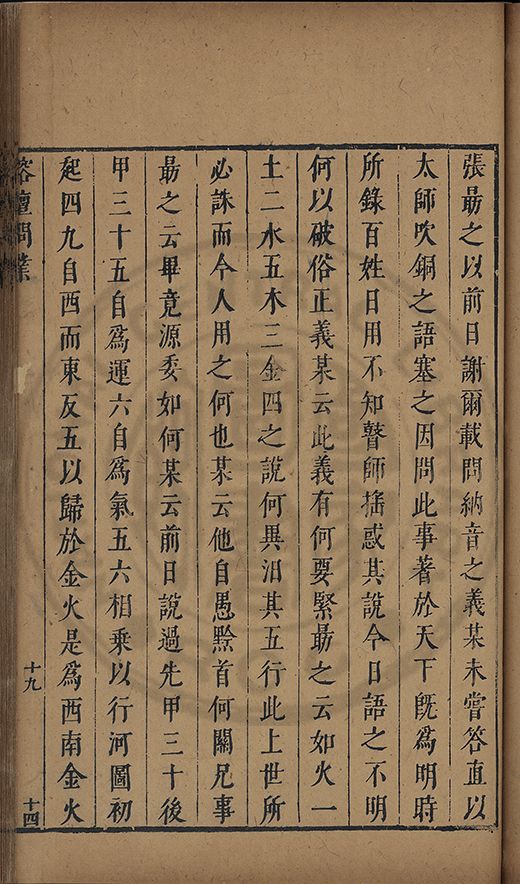 張勗之以前日謝爾載問納音之義某未嘗答直以
太師吹銅之語塞之因問此事著於天下旣爲明時
所錄百姓日用不知瞽師揺惑其說今日語之不明
何以破俗正義某云此義有何要緊勗之云如火一
土二水五木三金四之說何異汨其五行此上世所
必誅而今人用之何也某云他自愚黔首何關兄事
勗之云畢竟源委如何某云前日說過先甲三十後
甲三十五自爲運六自爲氣五六相乗以行河圖初
起四九自西而東反五以歸於金火是爲西南金火
榕壇問業
十九
十四